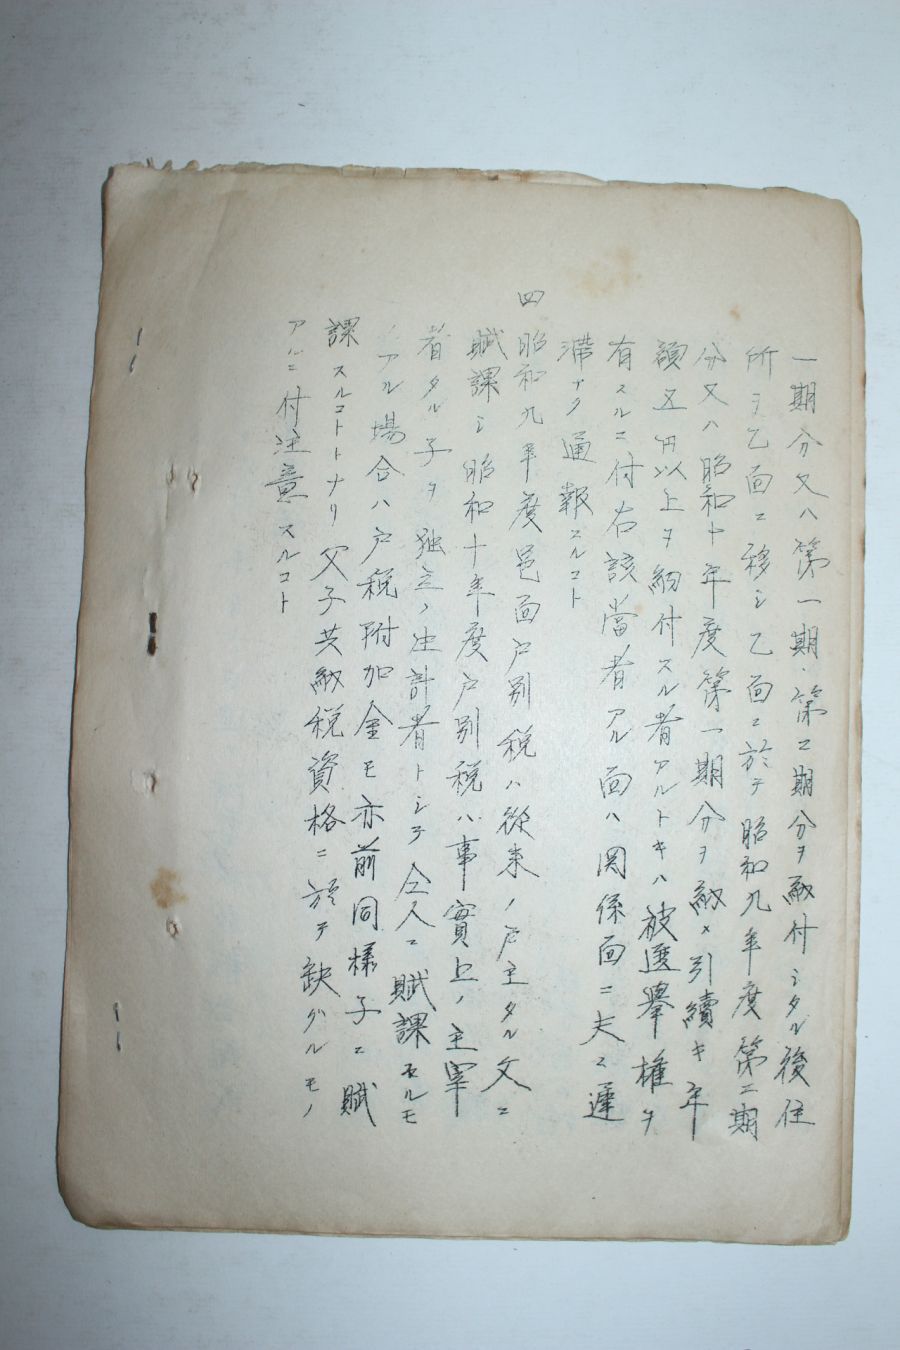 一期分又ハ第一期、第二期分ヲ納付シタル後住
所ヲ乙面ニ移シ乙面ニ於テ昭和九年度第二期
分又ハ昭和十年度第一期分ヲ納メ引續キ年
額五円以上ヲ納付スル者アルトキハ被選擧權ヲ
有スルニ付右該當者アル面ハ関係面ニ夫々遲
滯ナク通報スルコト
四 昭和九年度邑面戸別税ハ從来ノ戸主タル父ニ
賦課シ昭和十年度戸別税ハ事實上ノ主宰
者タル子ヲ独立ノ生計者トシテ仝人ニ賦課セルモ
ノアル場合ハ戸税附加金モ亦前同様子ニ賦
課スルコトトナリ父子共納税資格ニ於テ缺グルモノ
アルニ付注意スルコト